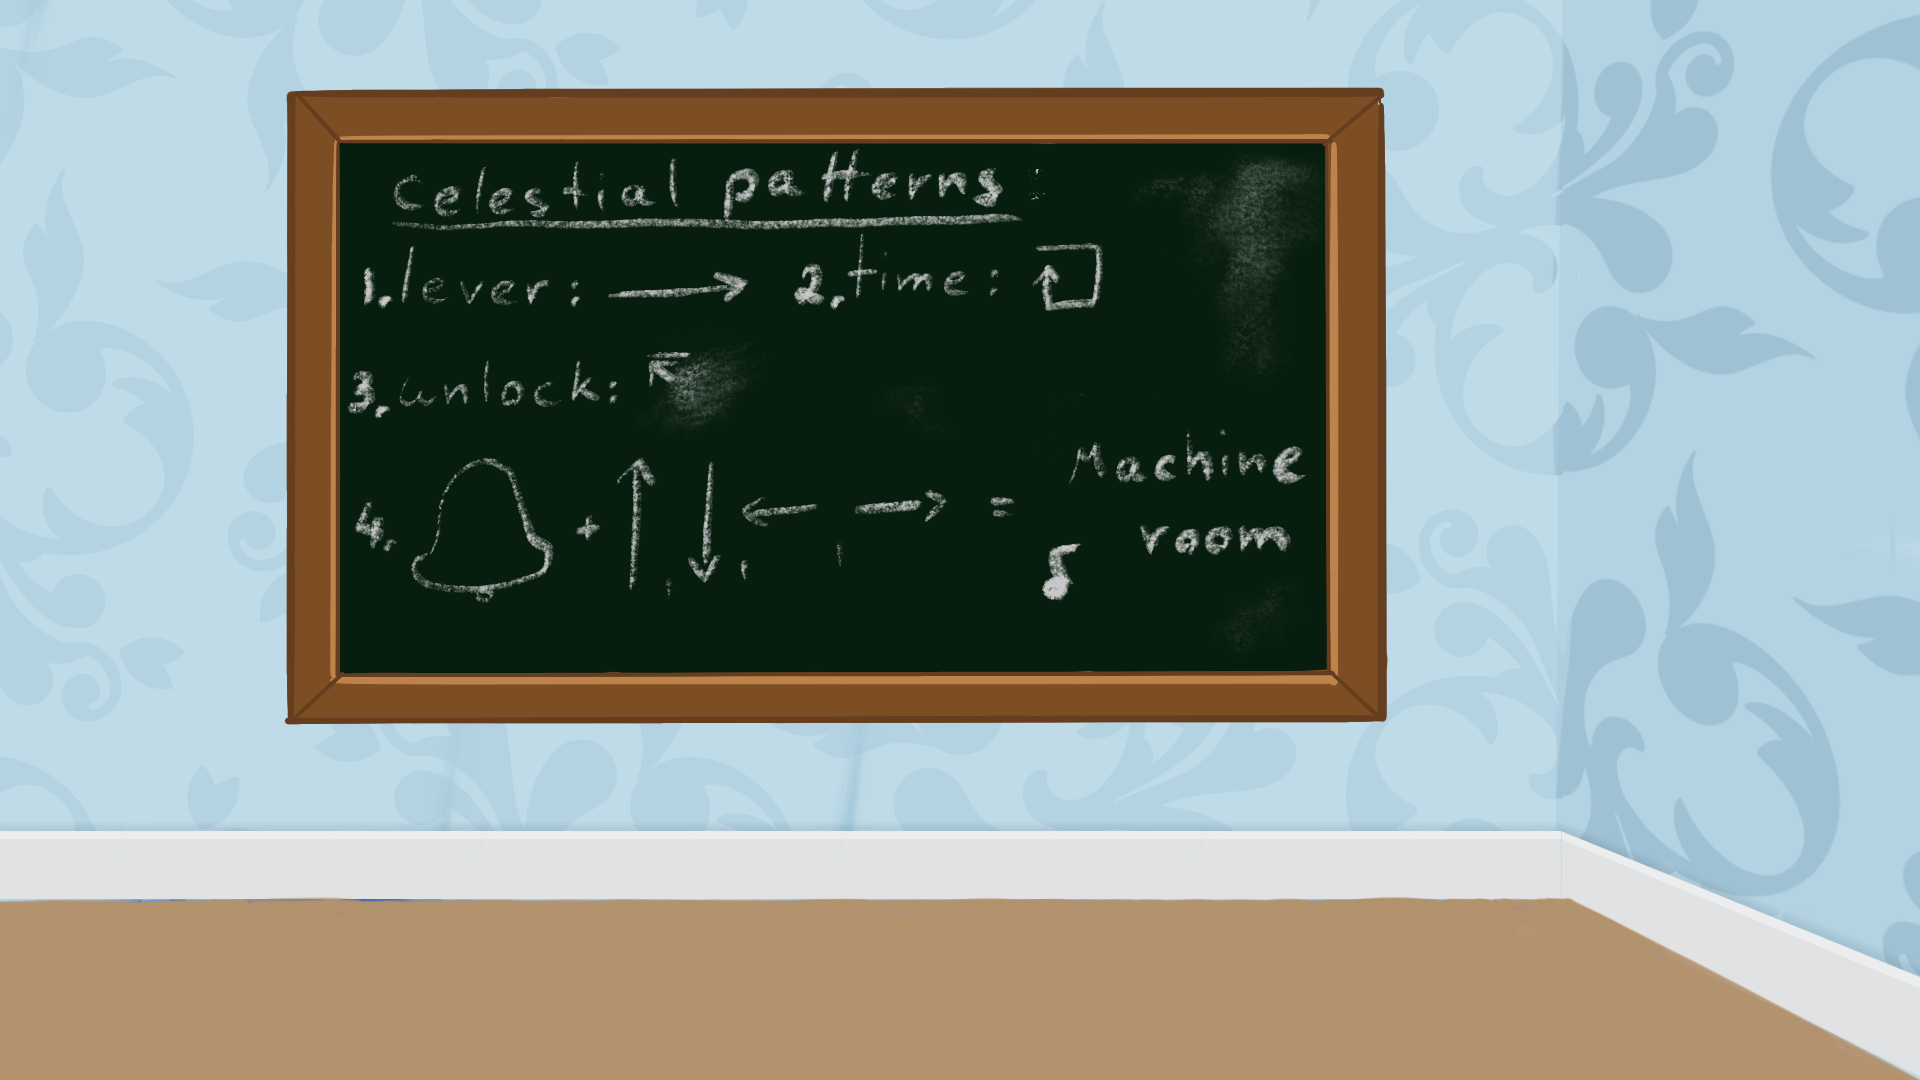 Celestial patterns:
1. lever: → 2. time:
3. unlock:
4. + ↑, ↓, ←, → = Machine
room